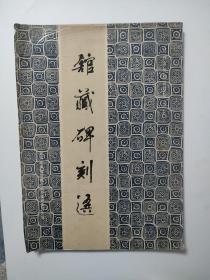 館藏碑刻選